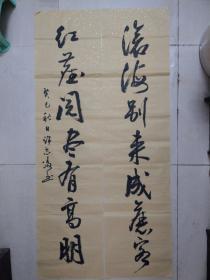 沧海别来成旧客
红尘阅尽有高明
癸巳秋日许志